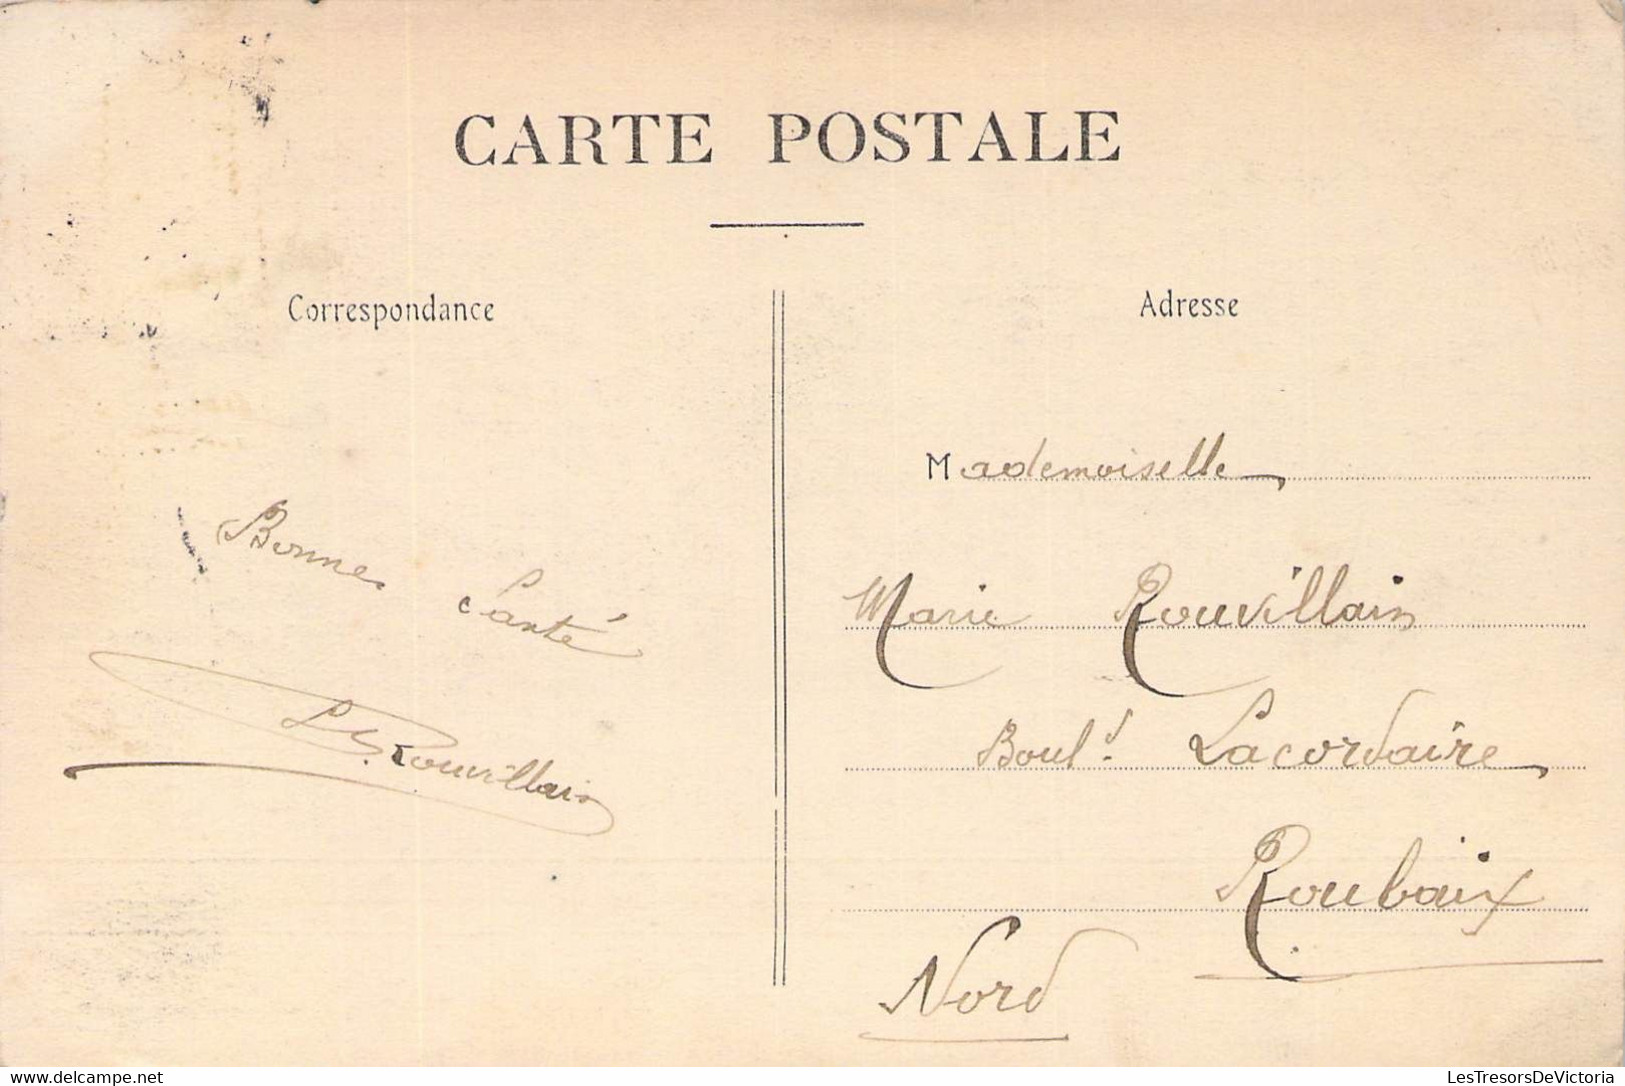 CARTE POSTALE
Correspondance
Bonne Santé
Rouvillain
Adresse
Mademoiselle
Marie Rouvillain
Boul.d Lacordaire
Roubaix
Nord
LesTresorsDeVictoria